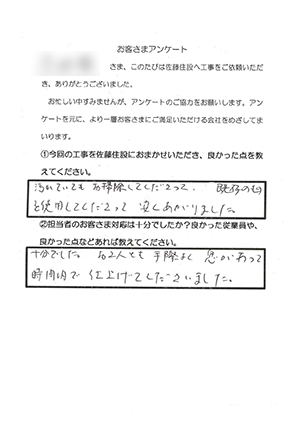 お客さまアンケート
さま、このたびは佐藤住設へ工事をご依頼いただ
き、ありがとうございました。
お忙しい中すみませんが、アンケートのご協力をお願いします。アン
ケートを元に、より一層お客さまにご満足いただける会社をめざしてま
いります。
①今回の工事を佐藤住設におまかせいただき、良かった点を教
えてください。
汚れていてもお掃除してくださって、既存の物
を使用してくださって安くあがりました。
②担当者のお客さま対応は十分でしたか?良かった従業員や、
良かった点などあれば教えてください。
十分でした。お2人とも手際よく息があって
時間内で仕上げてくださいました。